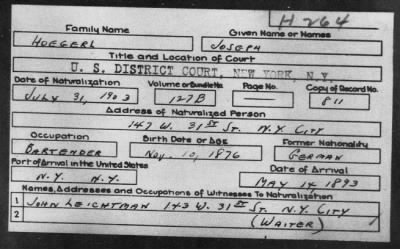 H 264
Family Name Given Name or Names
HOEGERL JOSEPH
Title and Location of Court
U. S. DISTRICT COURT, NEW YORK, N.Y.
Date of Naturalization Volume or Bundle No. Page No. Copy of Record No.
JULY 31, 1903 127B — 811
Address of Naturalized Person
147 W. 31ST ST. N.Y. CITY
Occupation Birth Date or Age Former Nationality
BARTENDER NOV. 10, 1876 GERMAN
Port of Arrival in the United States Date of Arrival
N.Y. N.Y. MAY 14, 1893
Names, Addresses and Occupations of Witnesses To Naturalization
1 JOHN LEICHTMAN 143 W. 31ST ST. N.Y. CITY
2 (WAITER)